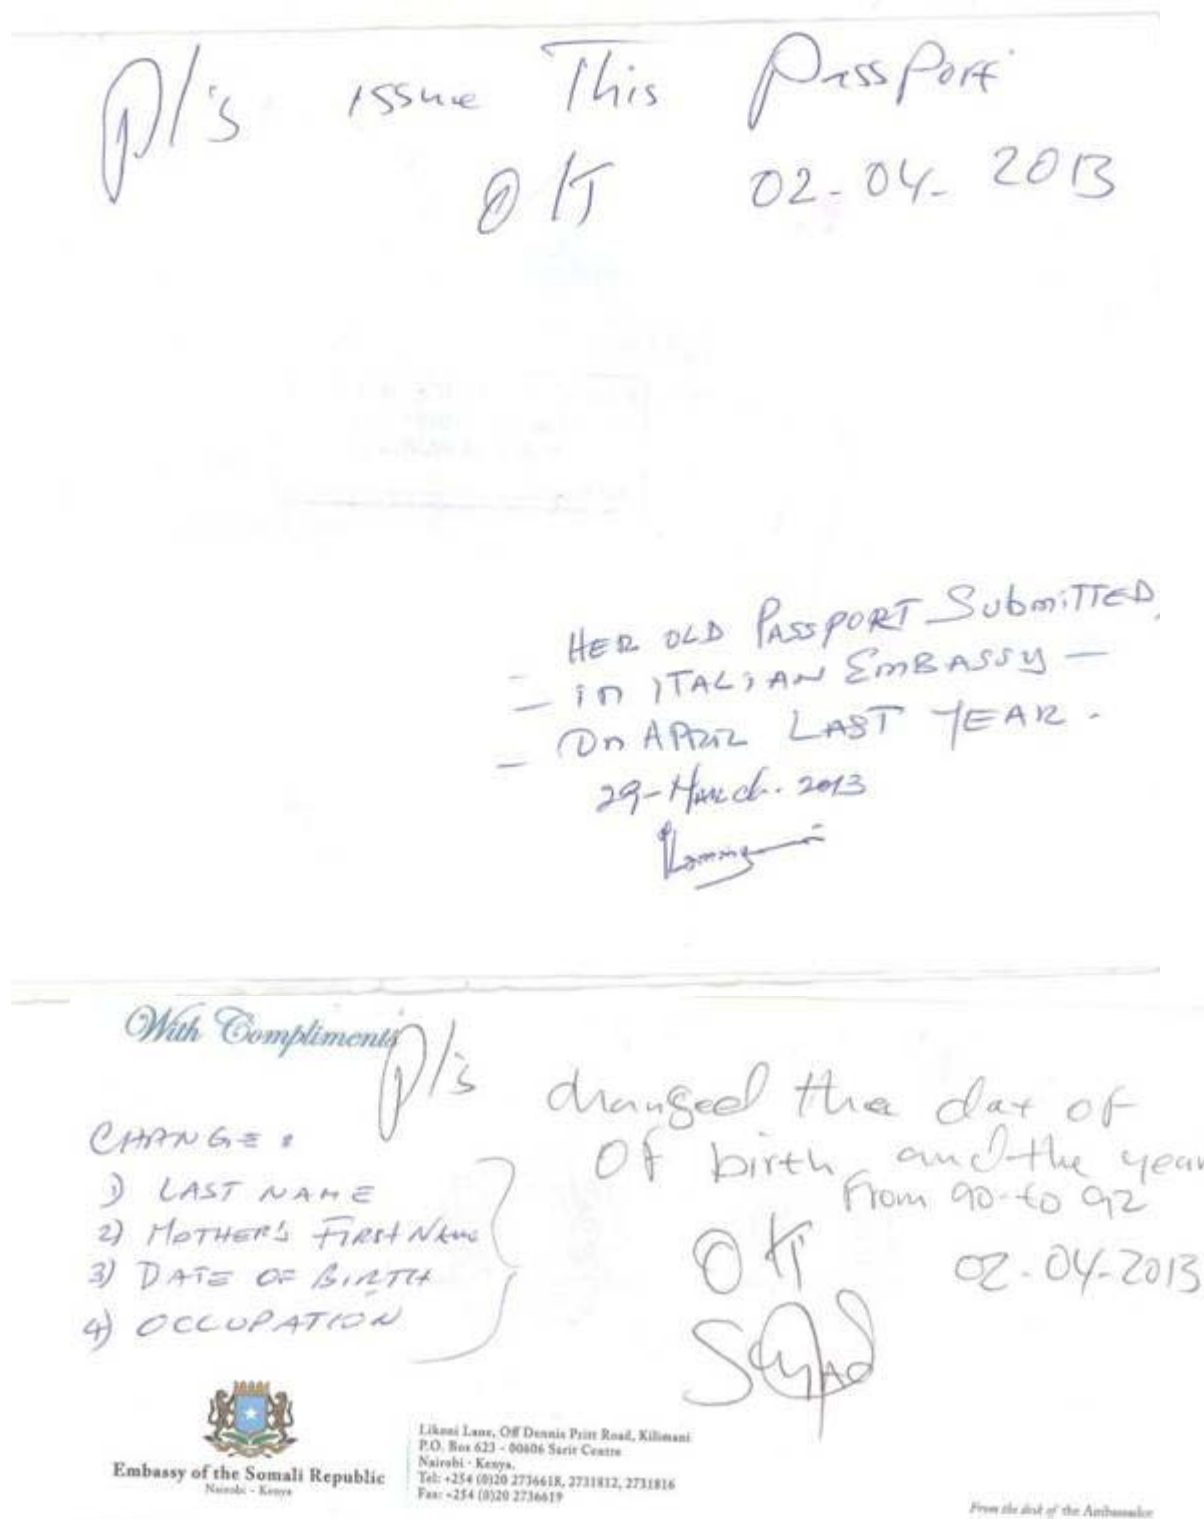 Pl's issue This Passport
OK 02-04-2013
HER OLD PASSPORT SubmiTTED
- in ITALIAN EMBASSY -
- On APRIL LAST YEAR.
29-March. 2013
With Compliments
Pl's changed the dat of
Of birth and the year
From 90-to 92
OK 02-04-2013
CHANGE:
1) LAST NAME
2) MOTHER'S FIRST NAME
3) DATE OF BIRTH
4) OCCUPATION
Embassy of the Somali Republic
Nairobi - Kenya
Likoni Lane, Off Dennis Pritt Road, Kilimani
P.O. Box 623 - 00606 Sarit Centre
Nairobi - Kenya.
Tel: +254 (0)20 2736618, 2731812, 2731816
Fax: +254 (0)20 2736619
From the desk of the Ambassador